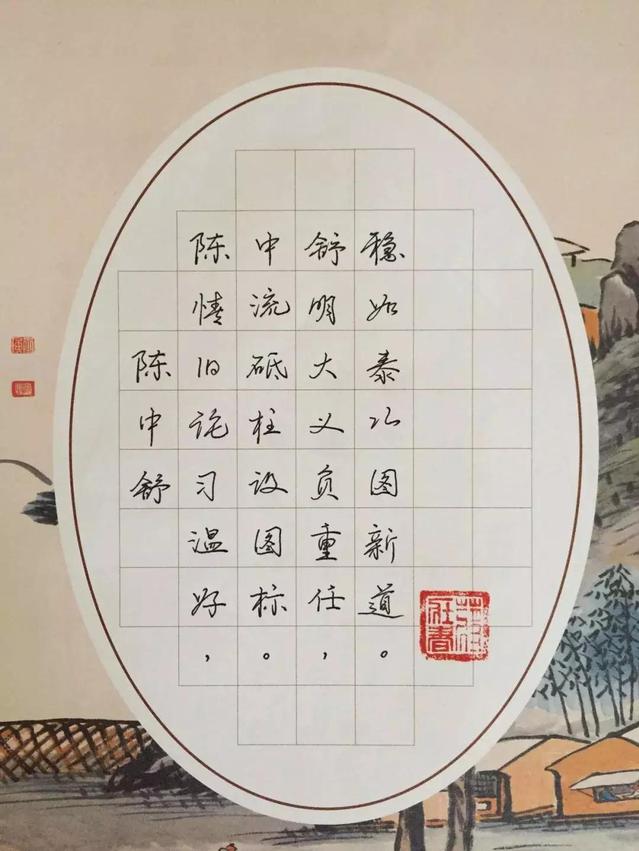 陈中舒
陈情旧习温好，
中流砥柱设图标。
舒明大义负重任，
稳如泰山图新道。